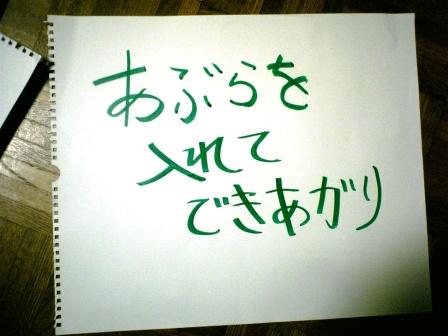 あぶらを
入れて
できあがり